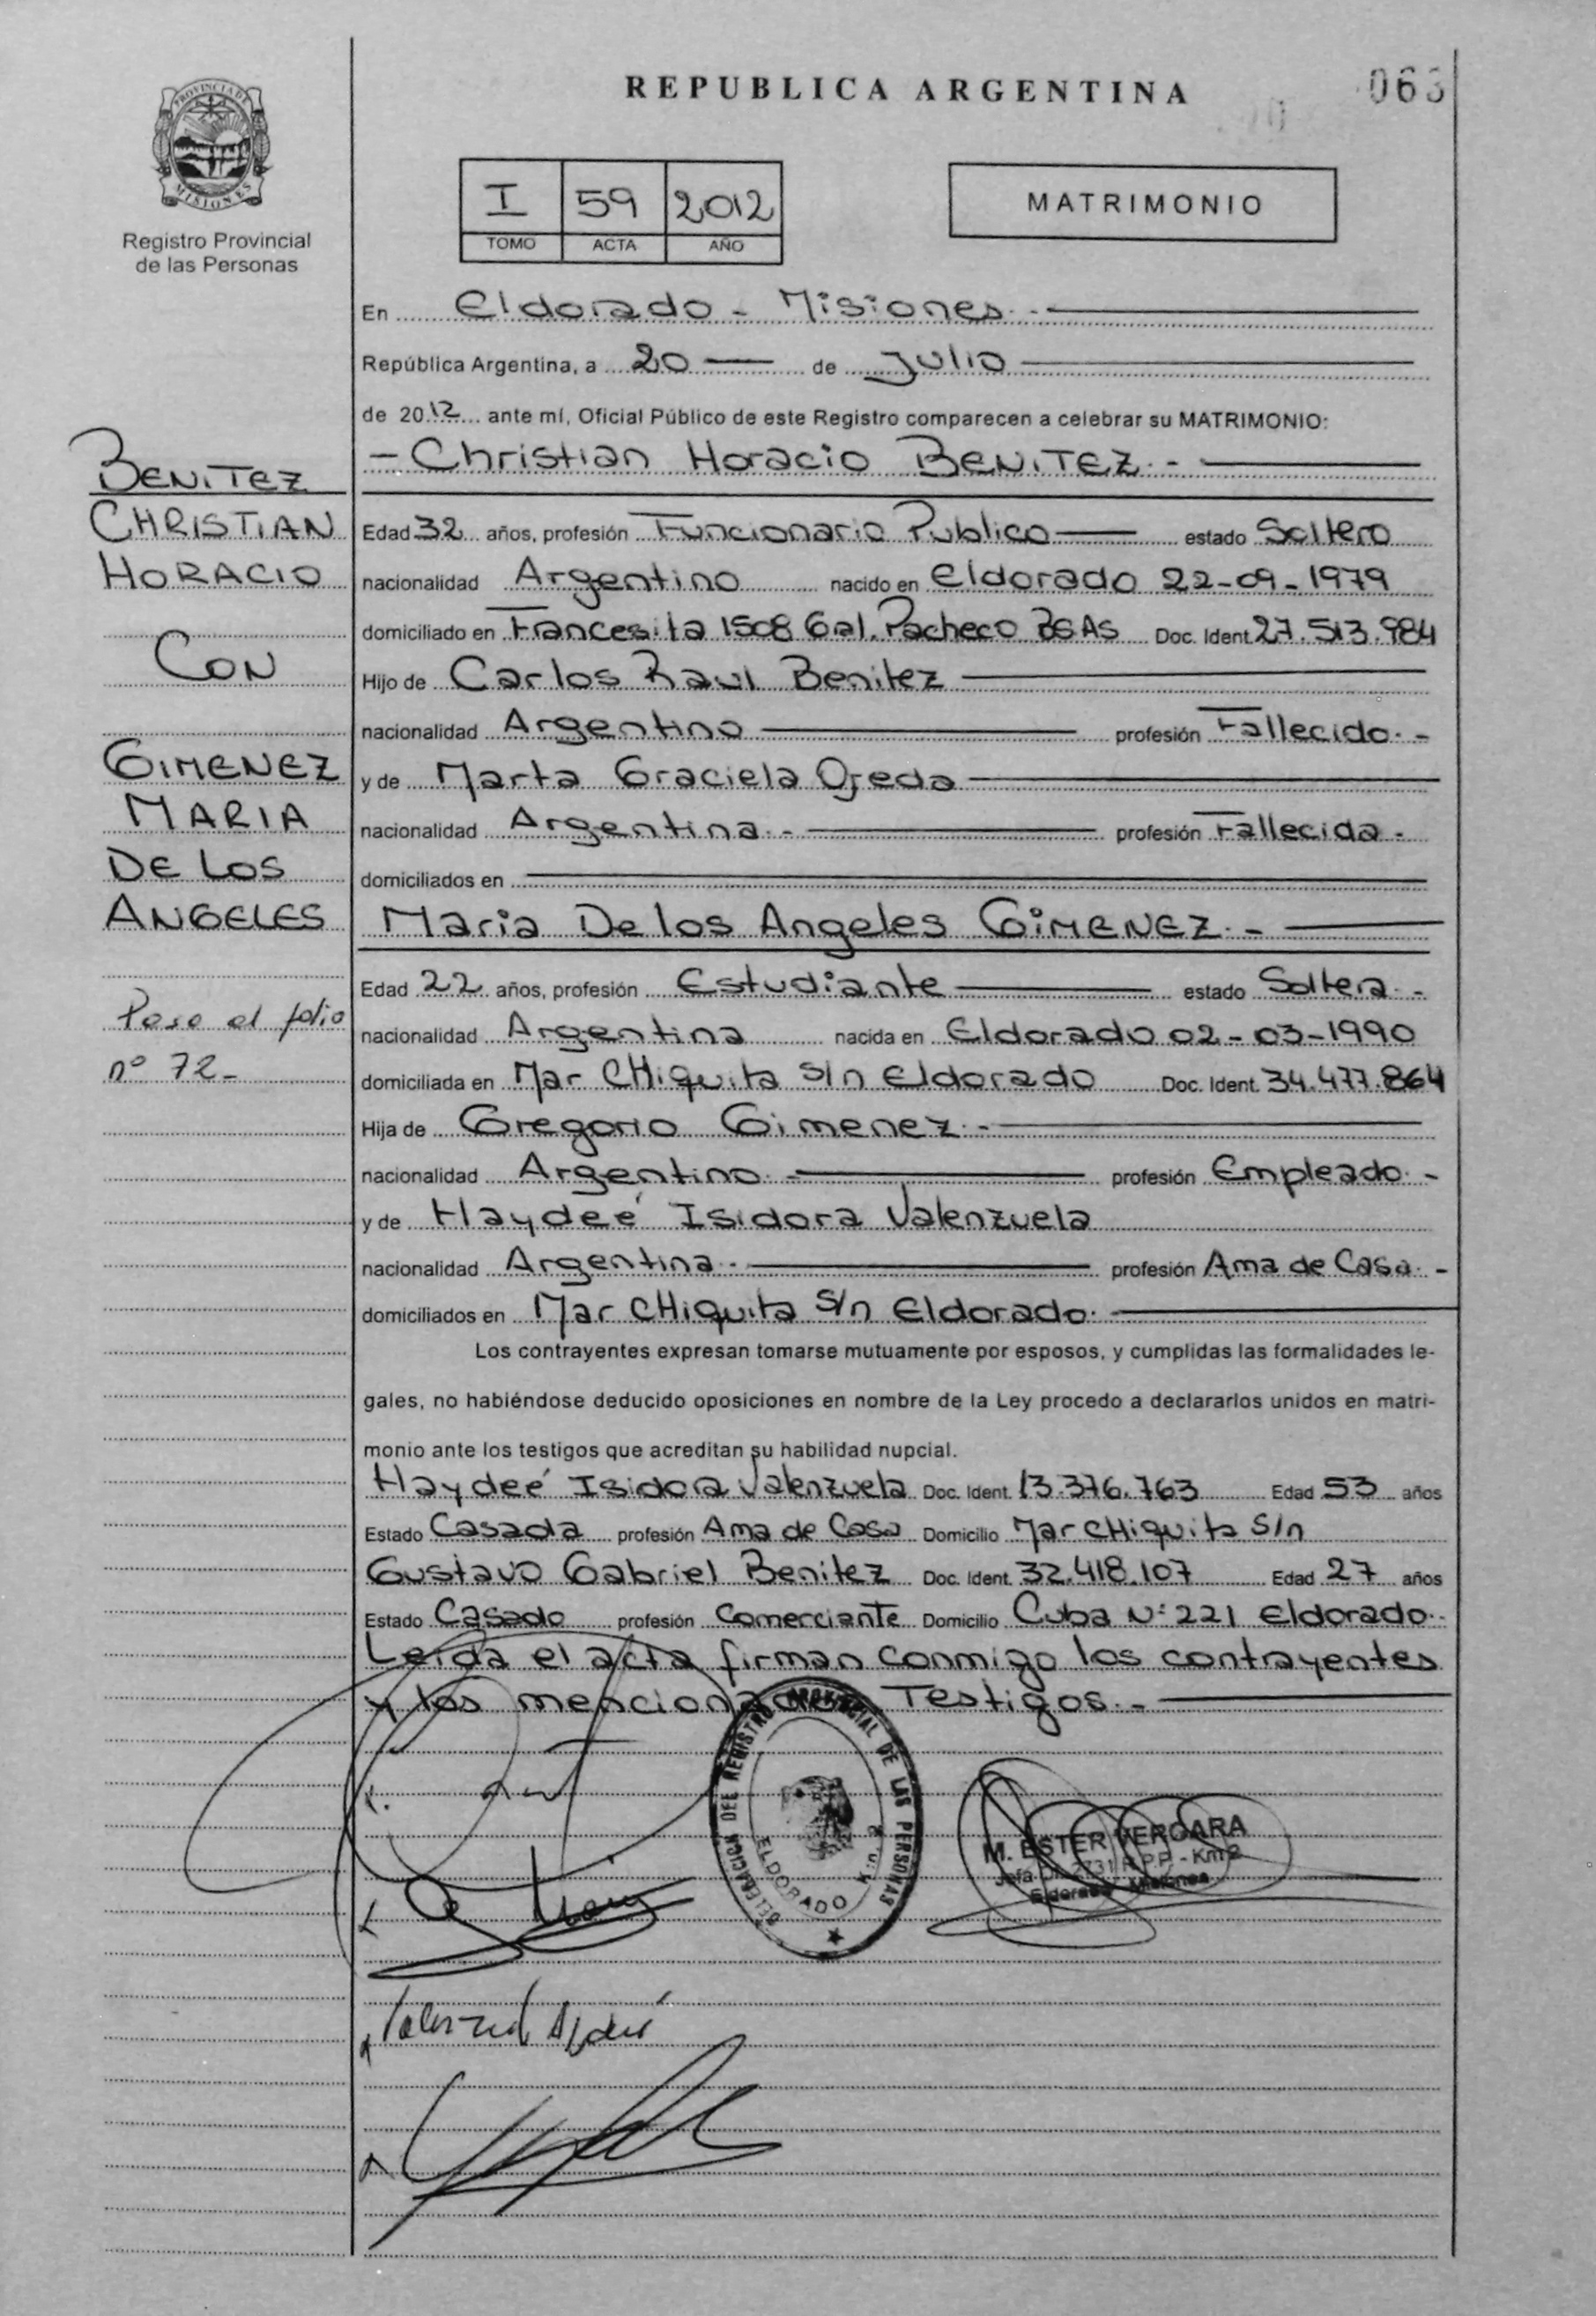 REPUBLICA ARGENTINA
063
PROVINCIA DE
MISIONES
Registro Provincial
de las Personas
I 59 2012
TOMO ACTA AÑO
MATRIMONIO
En Eldorado - Misiones. -
República Argentina, a 20 de Julio
de 2012 ante mí, Oficial Público de este Registro comparecen a celebrar su MATRIMONIO:
- Christian Horacio BENITEZ. -
Edad 32 años, profesión Funcionario Publico estado Soltero
nacionalidad Argentino nacido en Eldorado 22-09-1979
domiciliado en Francesita 1508 Gal. Pacheco BSAS Doc. Ident. 27.513.984
Hijo de Carlos Raul Benitez
nacionalidad Argentino profesión Fallecido. -
y de Marta Graciela Ojeda
nacionalidad Argentina. - profesión Fallecida -
domiciliados en
Maria De los Angeles GIMENEZ. -
Edad 22 años, profesión Estudiante estado Soltera -
nacionalidad Argentina nacida en Eldorado 02-03-1990
domiciliada en Mar CHiquita S/n Eldorado Doc. Ident. 34.477.864
Hija de Gregorio Gimenez. -
nacionalidad Argentino. - profesión Empleado. -
y de Haydeé Isidora Valenzuela
nacionalidad Argentina. profesión Ama de Casa. -
domiciliados en Mar CHiquita S/n Eldorado.
Los contrayentes expresan tomarse mutuamente por esposos, y cumplidas las formalidades le-
gales, no habiéndose deducido oposiciones en nombre de la Ley procedo a declararlos unidos en matri-
monio ante los testigos que acreditan su habilidad nupcial.
Haydeé Isidora Valenzuela Doc. Ident. 13.376.763 Edad 53 años
Estado Casada profesión Ama de Casa Domicilio Mar CHiquita S/n
Gustavo Gabriel Benitez Doc. Ident. 32.418.107 Edad 27 años
Estado Casado profesión Comerciante Domicilio Cuba Nº 221 Eldorado.
Leida el acta firman conmigo los contrayentes
y los mencionados Testigos. -
BENITEZ
CHRISTIAN
HORACIO
CON
GIMENEZ
MARIA
DE LOS
ANGELES
Pase al folio
nº 72-
DELEGACION DEL REGISTRO PROVINCIAL DE LAS PERSONAS
ELDORADO
M. ESTER VERGARA
Jefa 2731 R.P.P. - Km 2
Eldorado Misiones